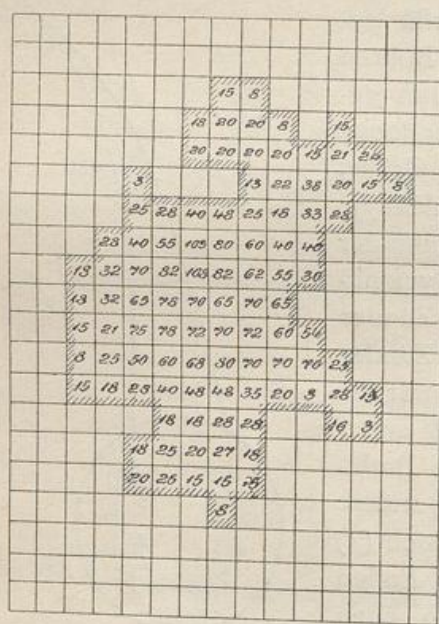 15 8
18 20 20 8 15
20 20 20 20 15 21 26
3 13 22 38 20 15 8
25 28 40 48 25 18 33 28
28 40 55 103 80 60 40 40
13 32 70 82 103 82 62 55 30
13 32 65 78 70 65 70 65
15 21 75 78 72 70 72 60 50
8 25 50 60 68 80 70 70 70 25
15 18 23 40 48 48 35 20 3 28 13
18 18 28 28 16 3
18 25 20 27 18
20 26 15 15 15
8